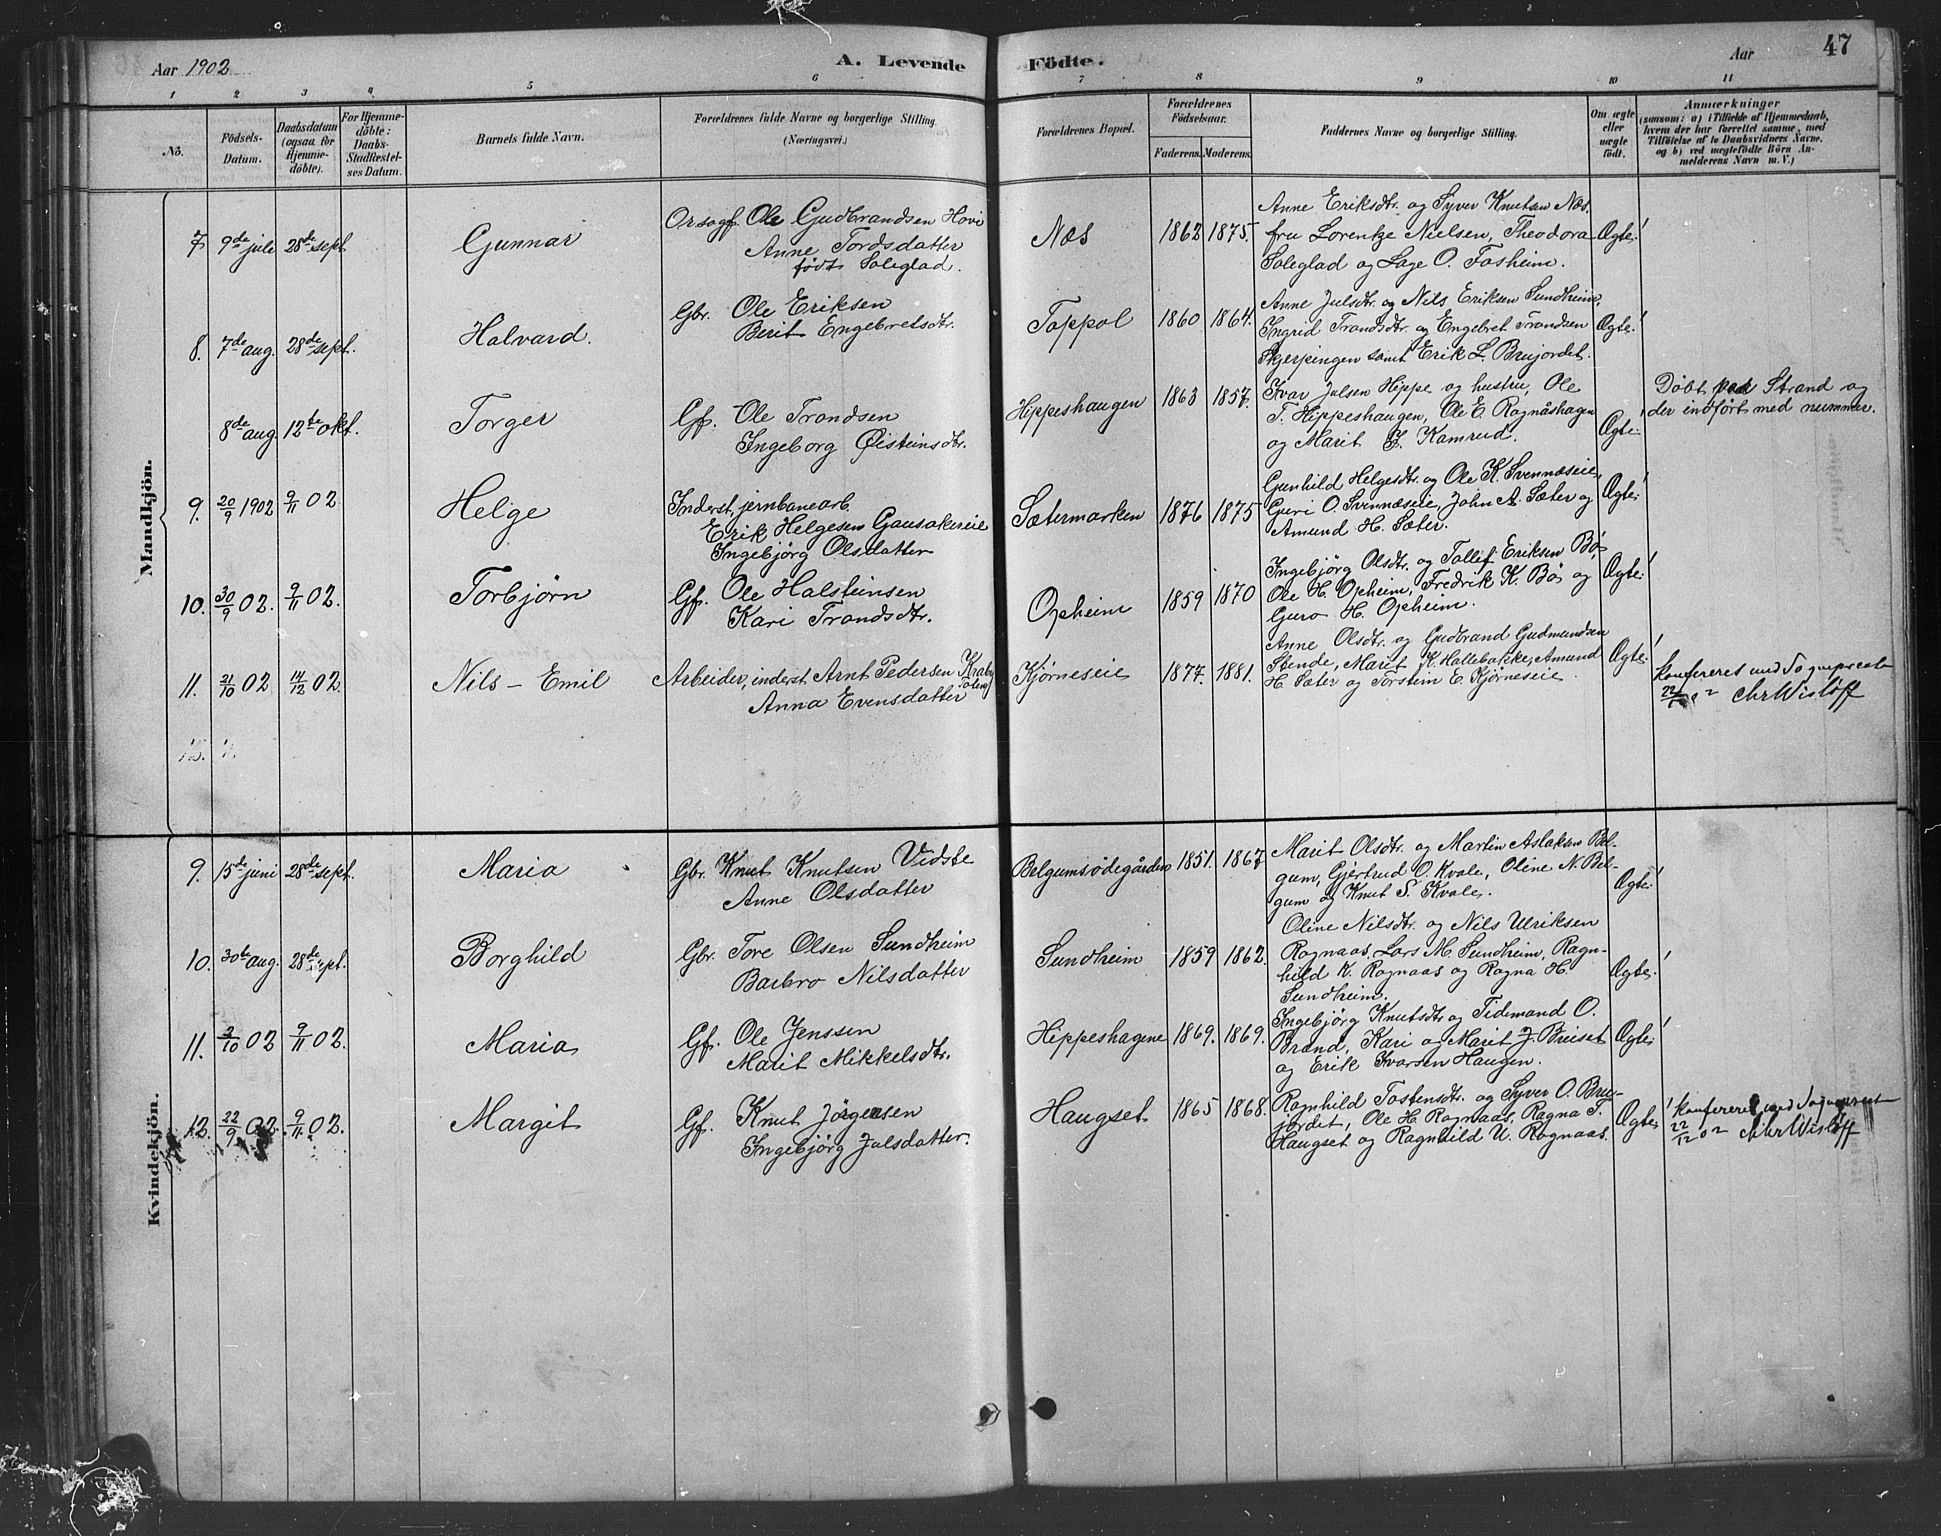 47
Aar 1902
A. Levende Fødte.
Aar
1 2 3 4 5 6 7 8 9 10 11
No.
Fødsels-Datum.
Daabsdatum (ogsaa for Hjemmedøbte).
For Hjemmedøbte: Daabs-Stadfæstelses Datum.
Barnets fulde Navn.
Forældrenes fulde Navne og borgerlige Stilling. (Næringsvei.)
Forældrenes Bopæl.
Forældrenes Fødselsaar.
Faderens. Moderens.
Faddernes Navne og borgerlige Stilling.
Om ægte eller uægte født.
Anmærkninger
(saasom: a) i Tilfælde af Hjemmedaab, hvem der har forrettet samme, med Tilføielse af to Daabsvidners Navne, og b) ved uægtefødte Börn Anmelderens Navn m. V.)
Mandkjön.
7 9de juli 28de sept. Gunnar
Ole Gudbrandsen Hovi
Anne Tordsdatter
født Soleglad.
Næs 1862 1875.
Anne Eriksdtr. og Syver Knutsen Næs,
fru Lorentze Nielsen, Theodora
Soleglad og Lage O. Fosheim.
Ægte.
8. 7de aug. 28de sept. Halvard.
Gbr. Ole Eriksen
Berit Engebretsdtr.
Toppol 1860 1864.
Anne Julsdtr. og Nils Eriksen Sundheim,
Ingrid Trondsdtr. og Engebret Trondsen
Skjerpingen samt Erik L. Brujordet.
Ægte.
8de aug. 12te okt. Torger
Gf. Ole Trondsen
Ingeborg Øisteinsdtr.
Hippeshaugen 1863 1857.
Ivar Julsen Hippe og hustru, Ole
T. Hippeshaugen, Ole E. Rognåshagen
og Marit J. Kamrud.
Ægte
Döbt paa Strand og
der indfört med nummer.
9. 20/9 1902 9/11 02 Helge
Inderst, jernbanearb.
Erik Helgesen Gausakereie
Ingebjørg Olsdatter
Sætermarken 1876 1875
Gunhild Helgesdtr. og Ole K. Svennæseie,
Guri O. Svennæseie, John A. Sæter og
Amund H. Sæter.
Ægte
10. 30/9 02. 9/11 02. Torbjørn
Gf. Ole Halsteinsen
Kari Trondsdtr.
Opheim 1859 1870
Ingebjörg Olsdtr. og Tollif Eriksen Bö,
Ole H. Opheim, Fredrik K. Bö og
Guro H. Opheim.
Ægte
11. 21/10 02 14/12 02. Nils – Emil
Arbeider, inderst Arnt Pedersen Kraby
Toten
Anna Evensdatter
Kjørneseie 1877. 1881.
Anne Olsdtr. og Gudbrand Gudmundsen
Stende, Marit K. Hallebakke, Amund
H. Sæter og Torstein E. Kjørneseie.
Ægte
Konfereret med Sogneprest
Chr Wisløff
Kvindekjön.
9. 15de juni 28de sept. Maria
Gbr. Knut Knutsen Vidste
Anne Olsdatter
Belgumsödegården 1851. 1867
Marit Olsdtr. og Martin Aslaksen Bel-
gum, Gjertrud O. Kvale, Oline N. Bel-
gum og Knut S. Kvale.
Ægte
10. 30te aug. 28de sept. Borghild
Gbr. Tore Olsen Sundheim
Barbro Nilsdatter
Sundheim 1859 1862.
Oline Nilsdtr. og Nils Ulriksen
Rognaas, Lars M. Sundheim, Ragn-
hild K. Rognaas og Ragna H.
Sundheim.
Ægte.
11. 2/10 02 9/11 02. Maria
Gf. Ole Jenssen
Marit Mikkelsdtr.
Hippeshagene 1869. 1869.
Ingebjørg Knutsdtr. og Tidemand O.
Brænd, Kari og Marit J. Breiset
og Erik Ivarsen Haugen.
Ægte
12. 22/9 02. 9/11 02. Margit
Gf. Knut Jörgensen
Ingebjörg Julsdatter.
Haugset 1865 1868.
Ragnhild Tostensdtr. og Syver O. Bru-
jordet, Ole H. Rognaas, Ragna T.
Haugset og Ragnhild U. Rognaas.
Ægte
Konfereret med Sogneprest
22/12 02 Chr Wisløff